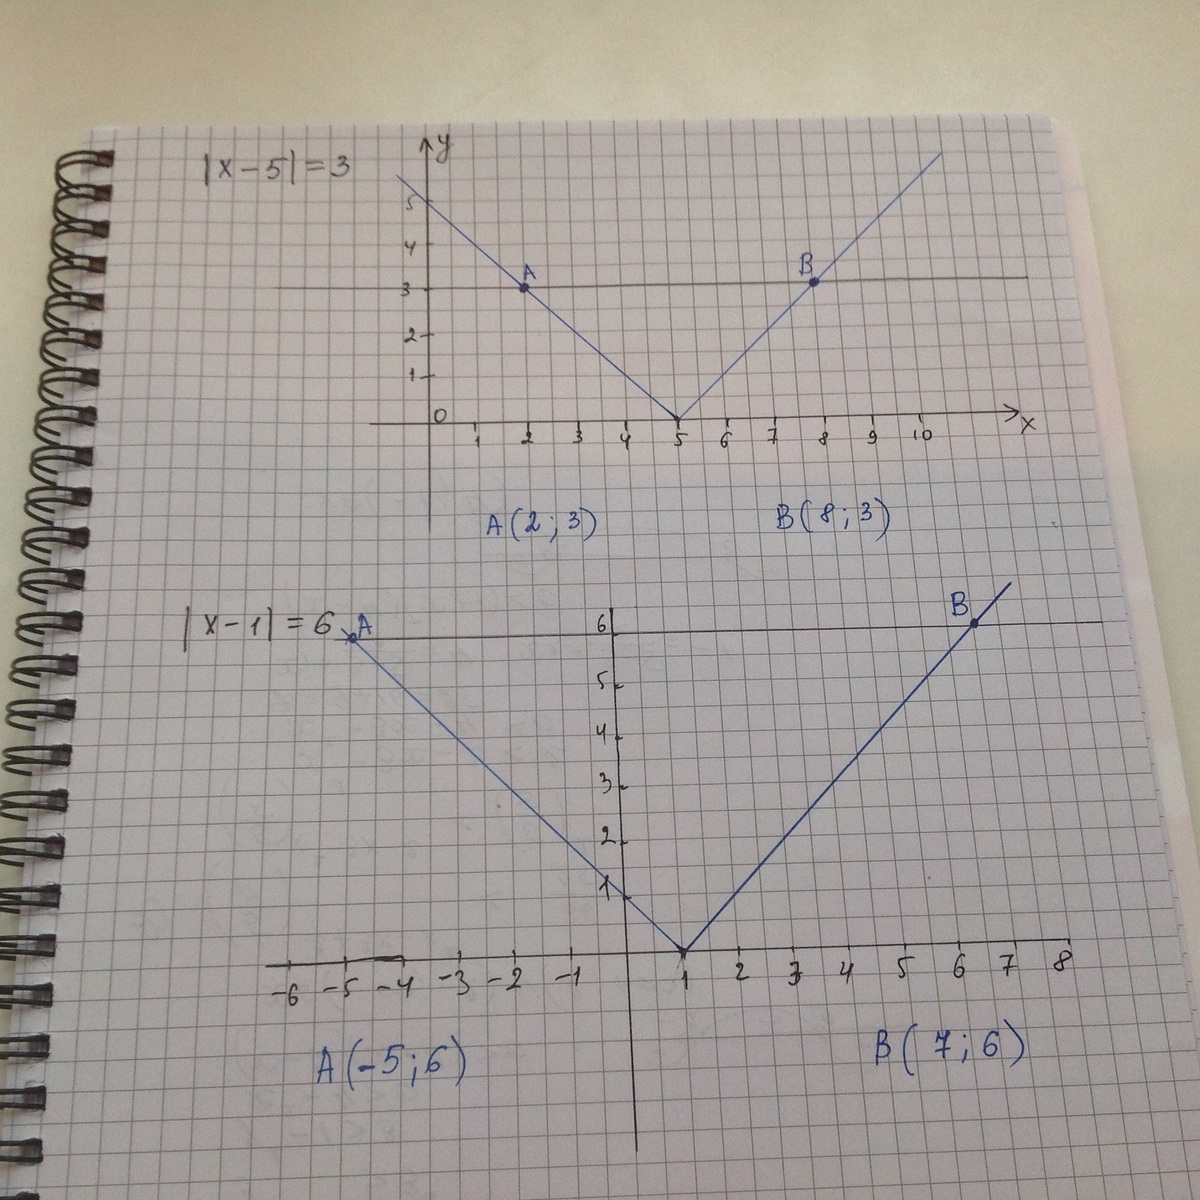 |x-5|=3
y
5
4
3
2
1
A
B
0
1 2 3 4 5 6 7 8 9 10
x
A(2;3) B(8;3)
|x-1|=6
A
B
6
5
4
3
2
1
-6 -5 -4 -3 -2 -1 1 2 3 4 5 6 7 8
A(-5;6) B(7;6)